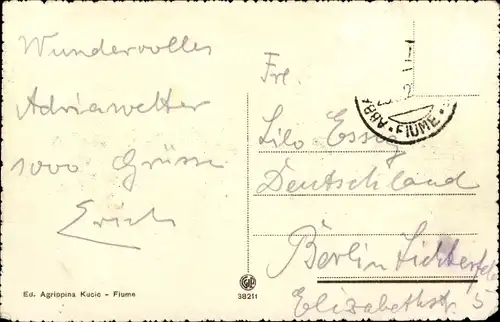 Wundervolles
Adriawetter
1000 Grüsse
Erich
Frl.
Lilo Essig
Deutschland
Berlin Lichterfelde
Elizabethstr. 5
ABBA
• FIUME •
Ed. Agrippina Kucic - Fiume
38211